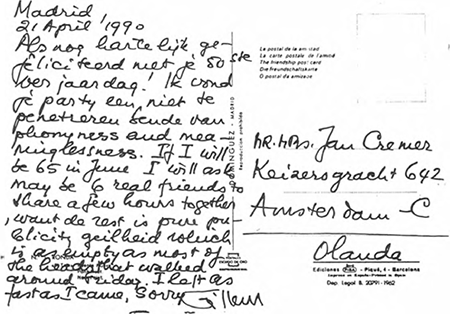 Madrid
21 April 1990
Als nog hartelijk ge-
feliciteerd met je 50 ste
ver jaardag! Ik vond
je party een niet te
penetreren bende van
phonyness and mea-
ninglessness. If I will
be 65 in June I will ask
may be 6 real friends to
share a few hours together
, want de rest is pure pu-
blicity geilheid which
is as empty as most of
the heads that walked
around Friday. I left as
fast as I came, Sorry
Willem
La postal de la amistad
La carte postale de l'amitié
The friendship post card
Die Freundschaftskarte
O postal da amizade
DOMINGUEZ - MADRID
Reproducción prohibida
MR. MRS. Jan Cremer
Keizersgracht 642
Amsterdam - C
Olanda
Ediciones Piqué, 4 - Barcelona
Dep. Legal B. 20791-1962